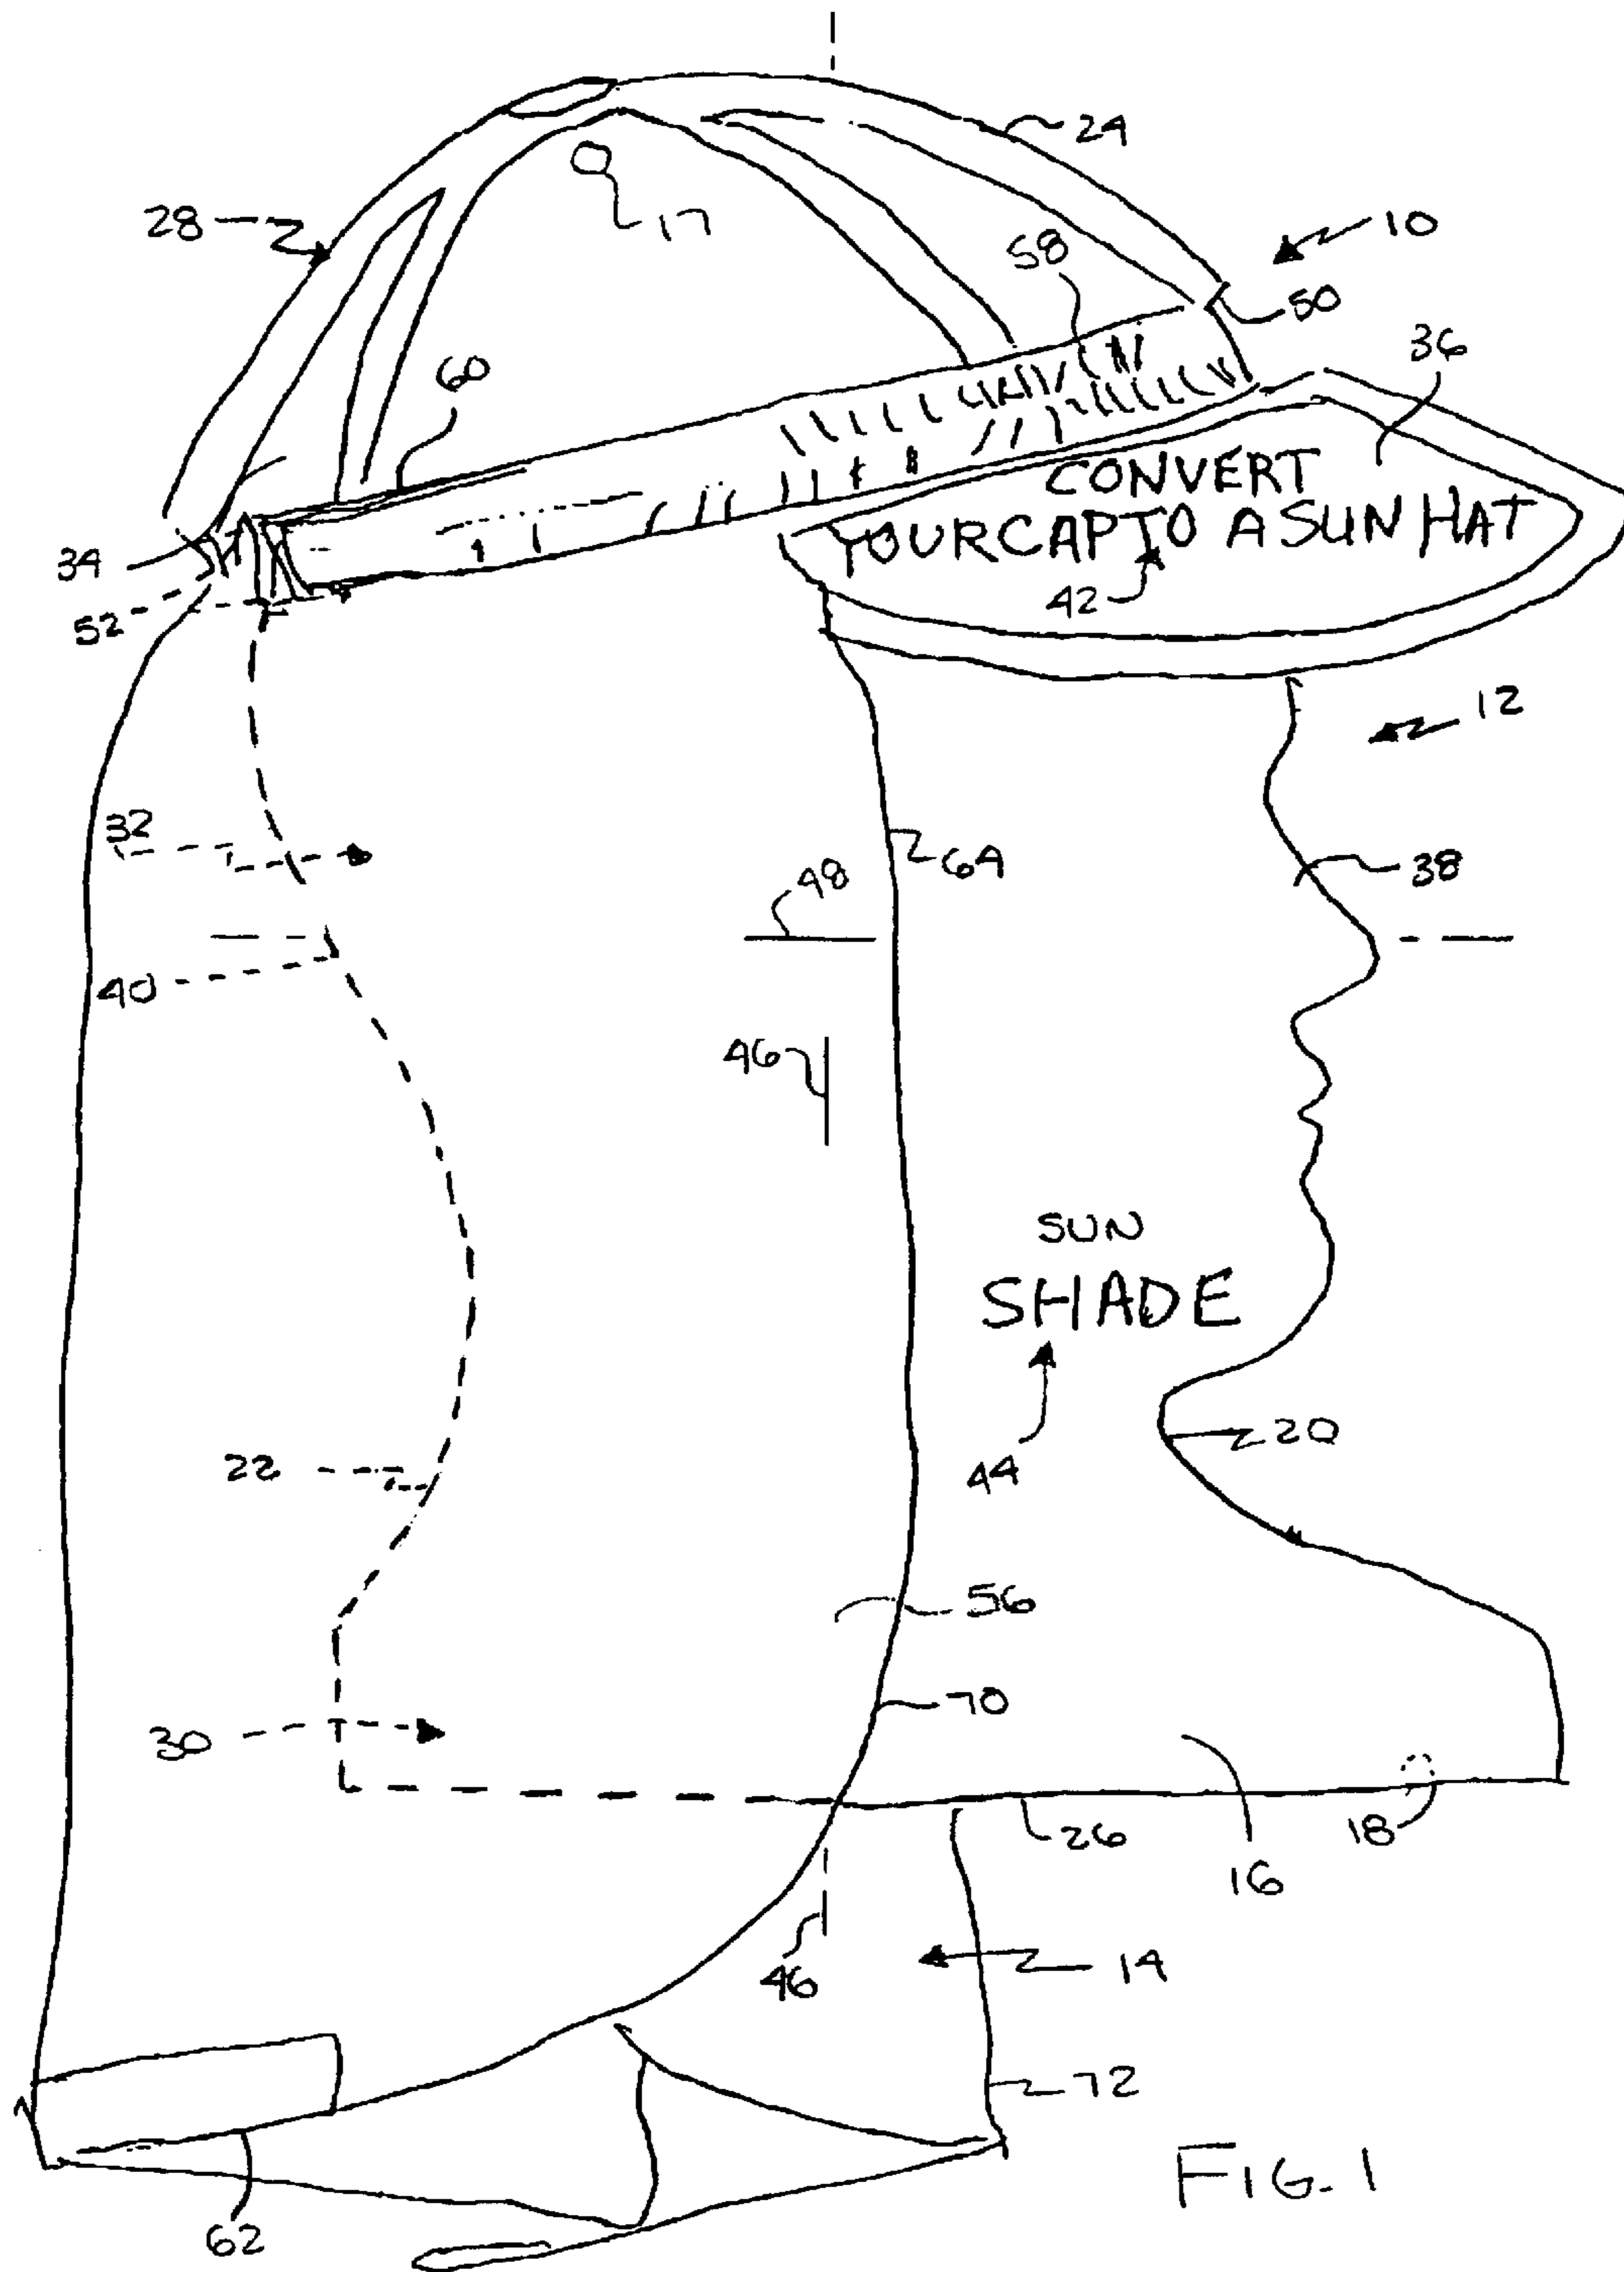 24
28
17
10
58
50
36
60
CONVERT
YOUR CAP TO A SUN HAT
34
42
52
12
32
64
48
38
40
46
SUN
SHADE
22
20
44
56
70
30
26
18
16
46
14
72
62
FIG. 1